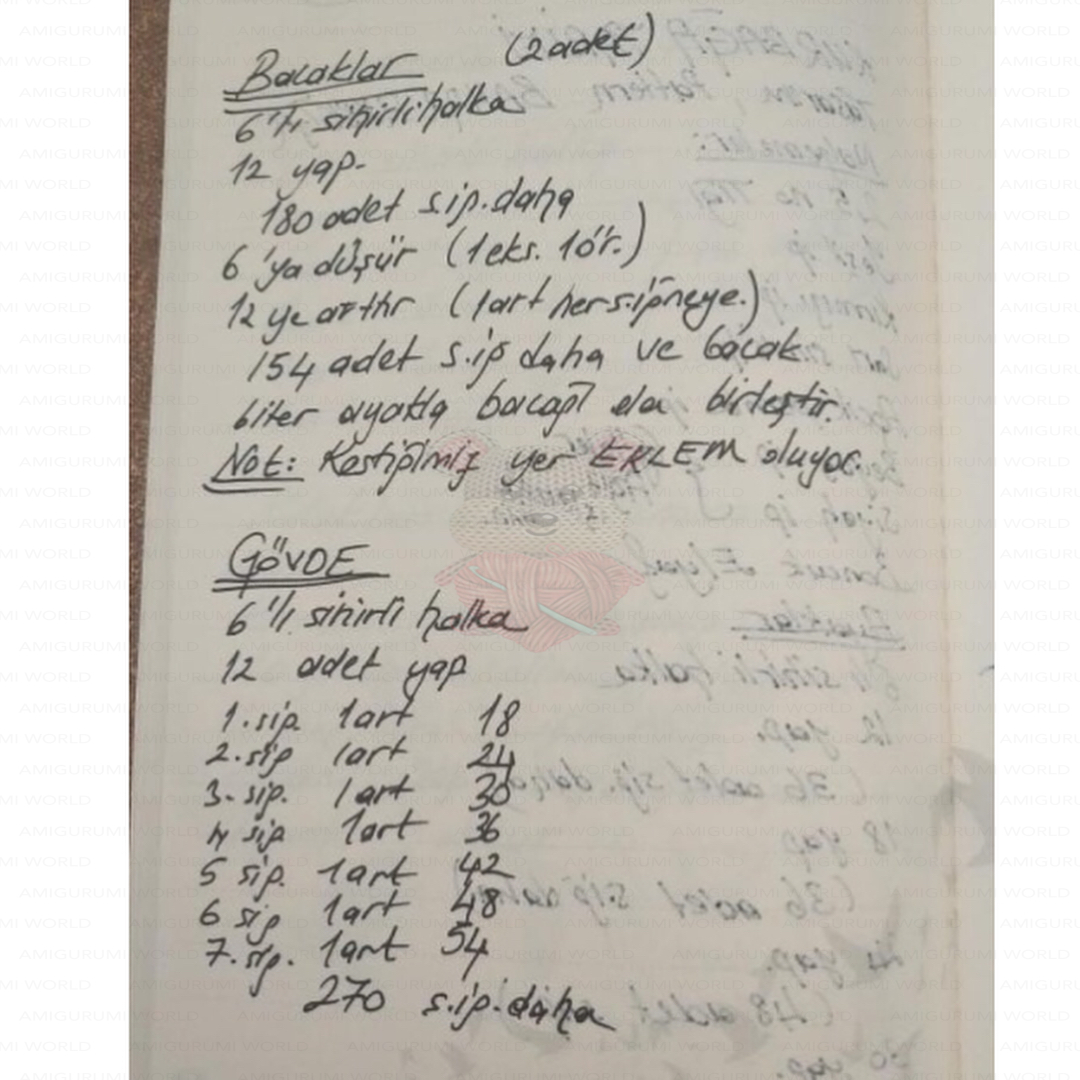 Bacaklar (2 adet)
6'lı sihirli halka
12 yap.
180 adet s.ip. daha
6'ya düşür (1 eks. 1 ör.)
12 ye arttır (1 art her s.ip neye.)
154 adet s.ip daha ve bacak
biter ayakla bacağı da birleştir.
Not: Kestiğimiz yer EKLEM oluyor.
GÖVDE
6'lı sihirli halka
12 adet yap
1. sip. 1 art 18
2. sip 1 art 24
3. sip. 1 art 30
4 sip 1 art 36
5 sip. 1 art 42
6 sip 1 art 48
7. sip. 1 art 54
270 s.ip. daha
AMIGURUMI WORLD